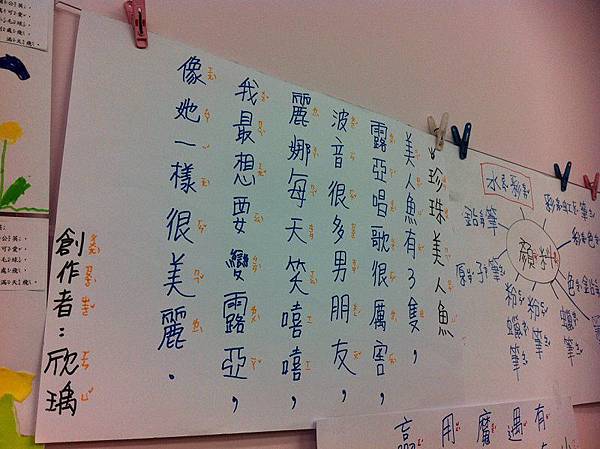 珍珠美人魚
美人魚有3隻,
露亞唱歌很厲害,
波音很多男朋友,
麗娜每天笑嘻嘻,
我最想要變露亞,
像她一樣很美麗.
創作者:欣瑀
顏料
水彩
彩虹筆
彩色
色鉛
蠟筆
粉筆
粉蠟筆
原子筆
鉛筆
有
遇
魔
用